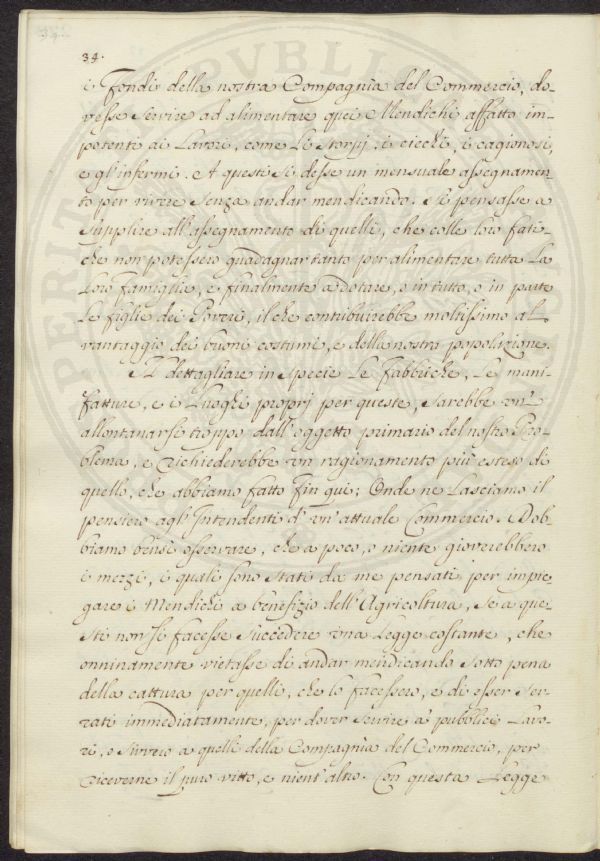 34.
i Fondi della nostra Compagnìa del Commercio, do-
vesse servire ad alimentare quei Mendichi affatto im-
potente ai Lavori, come Li Storpj, i ciechi, i cagionosi,
e gl'infermi. A questi si desse un mensuale assegnamen-
to per vivere senza andar mendicando. Si pensasse a
supplire all'assegnamento di quelli, che colle loro fati-
che non potessero guadagnar tanto per alimentare tutta La
Loro famiglia, e finalmente a dotare, o in tutto, o in parte
Le figlie dei Poveri, il che contribuirebbe moltissimo al
vantaggio dei buoni costumi, e della nostra popolizione.
Il dettagliare in specie Le fabbriche, Le mani-
fatture, e i Luoghi proprj per queste, sarebbe un'
allontanarsi troppo dall'oggetto primario del nostro Pro-
blema, e richiederebbe un ragionamento più esteso di
quello, che abbiamo fatto fin qui; Onde ne Lasciamo il
pensiero agl'Intendenti d'un'attuale Commercio. Dob-
biamo bensì osservare, che a poco, o niente gioverebbero
i mezzi, i quali sono stati da me pensati per impie-
gare i Mendichi a benefizio dell'Agricoltura, se a que-
sti non si facesse succedere una Legge costante, che
onninamente vietasse di andar mendicando sotto pena
della cattura per quelli, che lo facessero, e di esser ser-
rati immediatamente, per dover servire a' pubblici Lavo-
ri, o sivvero a quelli della Compagnìa del Commercio, per
riceverne il puro vitto, e nient'altro. Con questa Legge
PUBLIC
PERIT